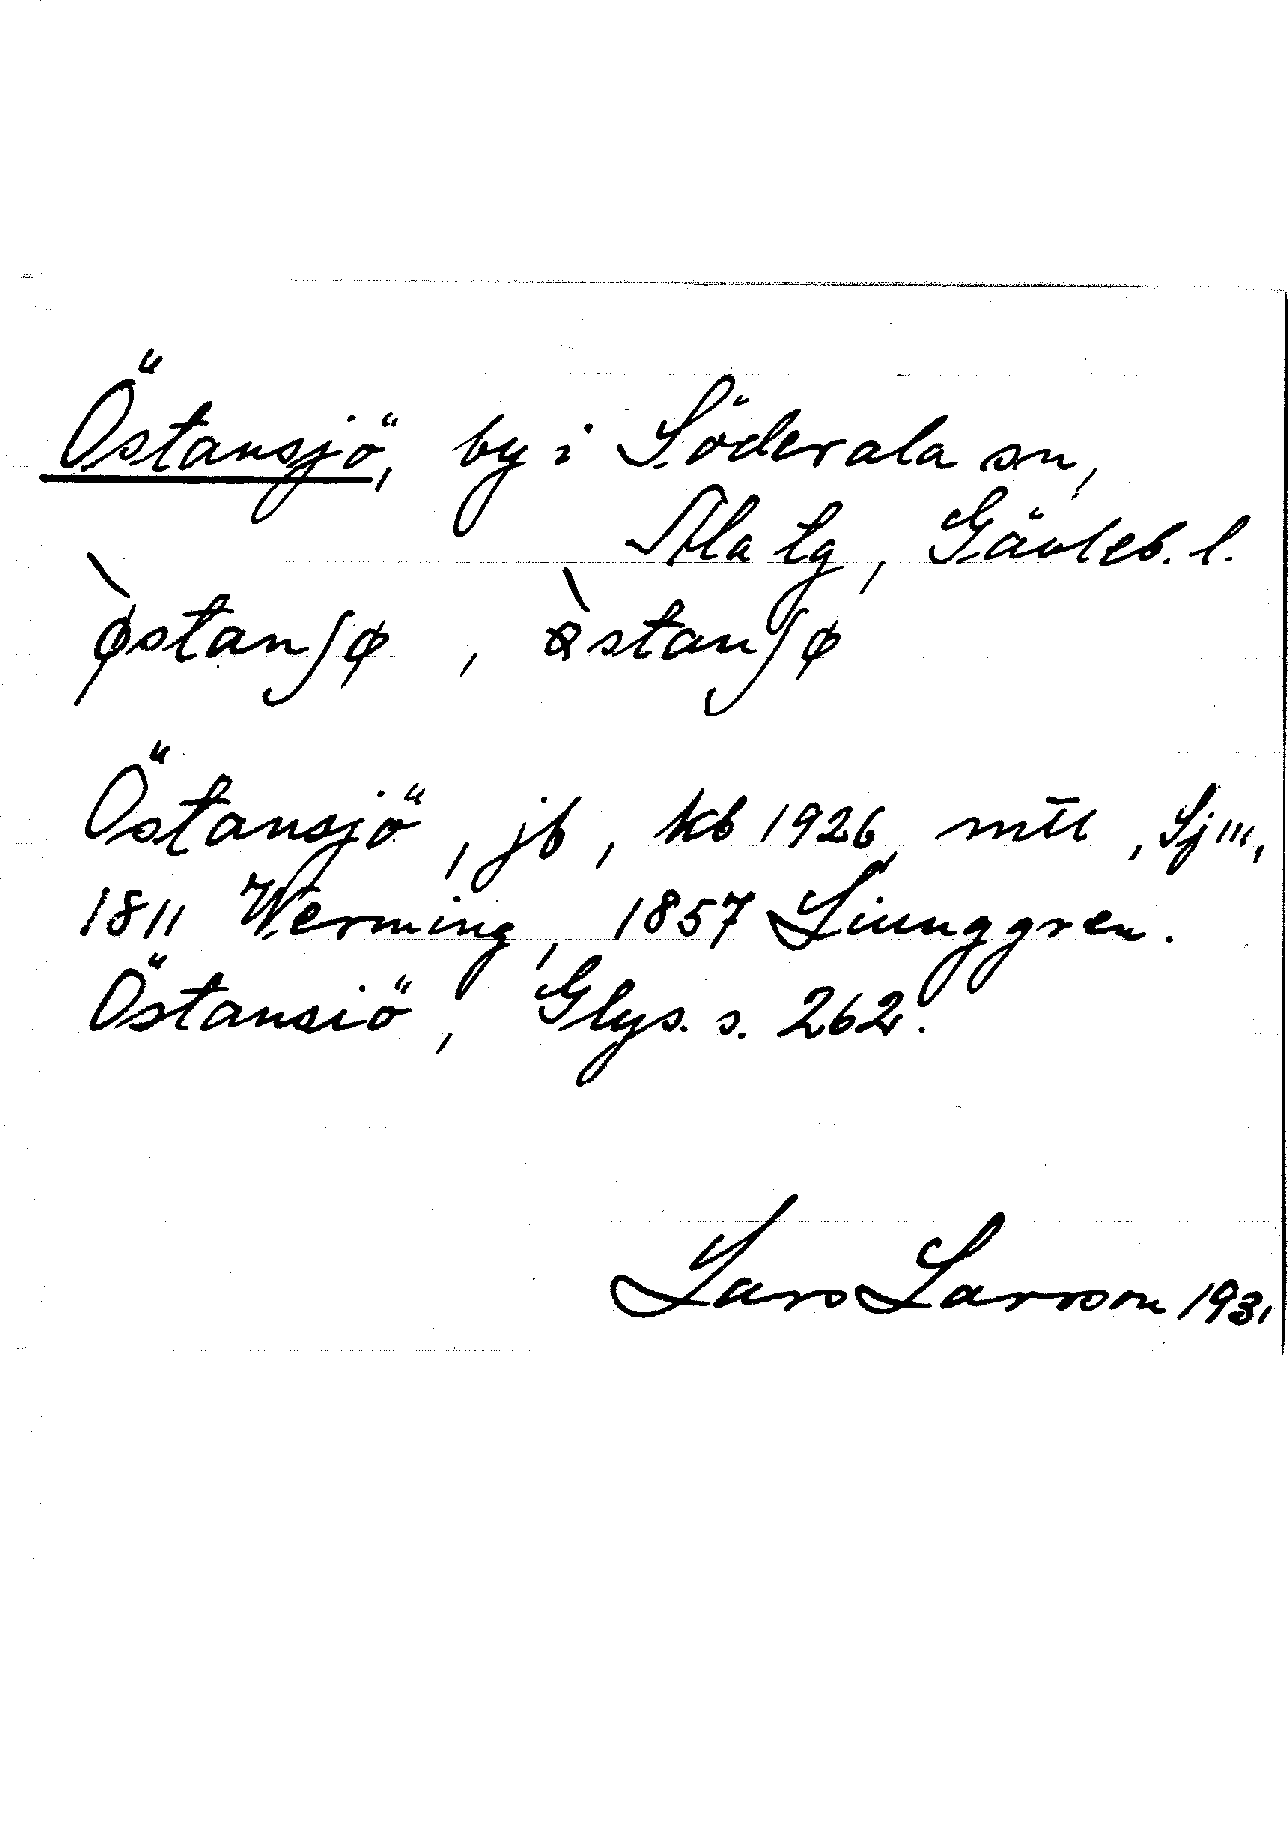 Östansjö, by i Söderala sn,
Ala tg, Gävleb. l.
ø̀stanʃø, ɞ̀stanʃø
Östansjö, jb, kb 1926, mtl, Sj III,
1811 Werming, 1857 Liunggren.
Östansiö, Glys. s. 262.
Lars Larsson 1931